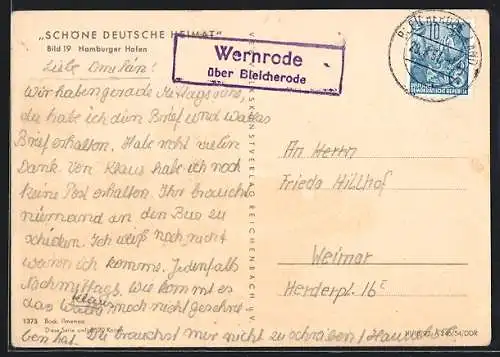 „SCHÖNE DEUTSCHE HEIMAT"
Bild 19 Hamburger Hafen
Wernrode
über Bleicherode
10
DEUTSCHE DEMOKRATISCHE REPUBLIK
Liebe
Wir haben gerade Mittagspause,
da habe ich dein Brief und
Brief erhalten. Habe recht vielen
Dank. Von Klaus habe ich noch
keine Post erhalten. Ihr braucht
niemand an den Bus zu
schicken. Ich weiß noch nicht
wann ich komme. Jedenfalls
Nachmittags. Wie kommt es
das Klaus noch nicht geschrie
ben hat. Du brauchst mir nicht zu schreiben!
An Herrn
Frieda Hillhof
Weimar
Herderpl. 16
VERLAG REICHENBACH i. V.
1373
Diese Serie umfaßt Karten